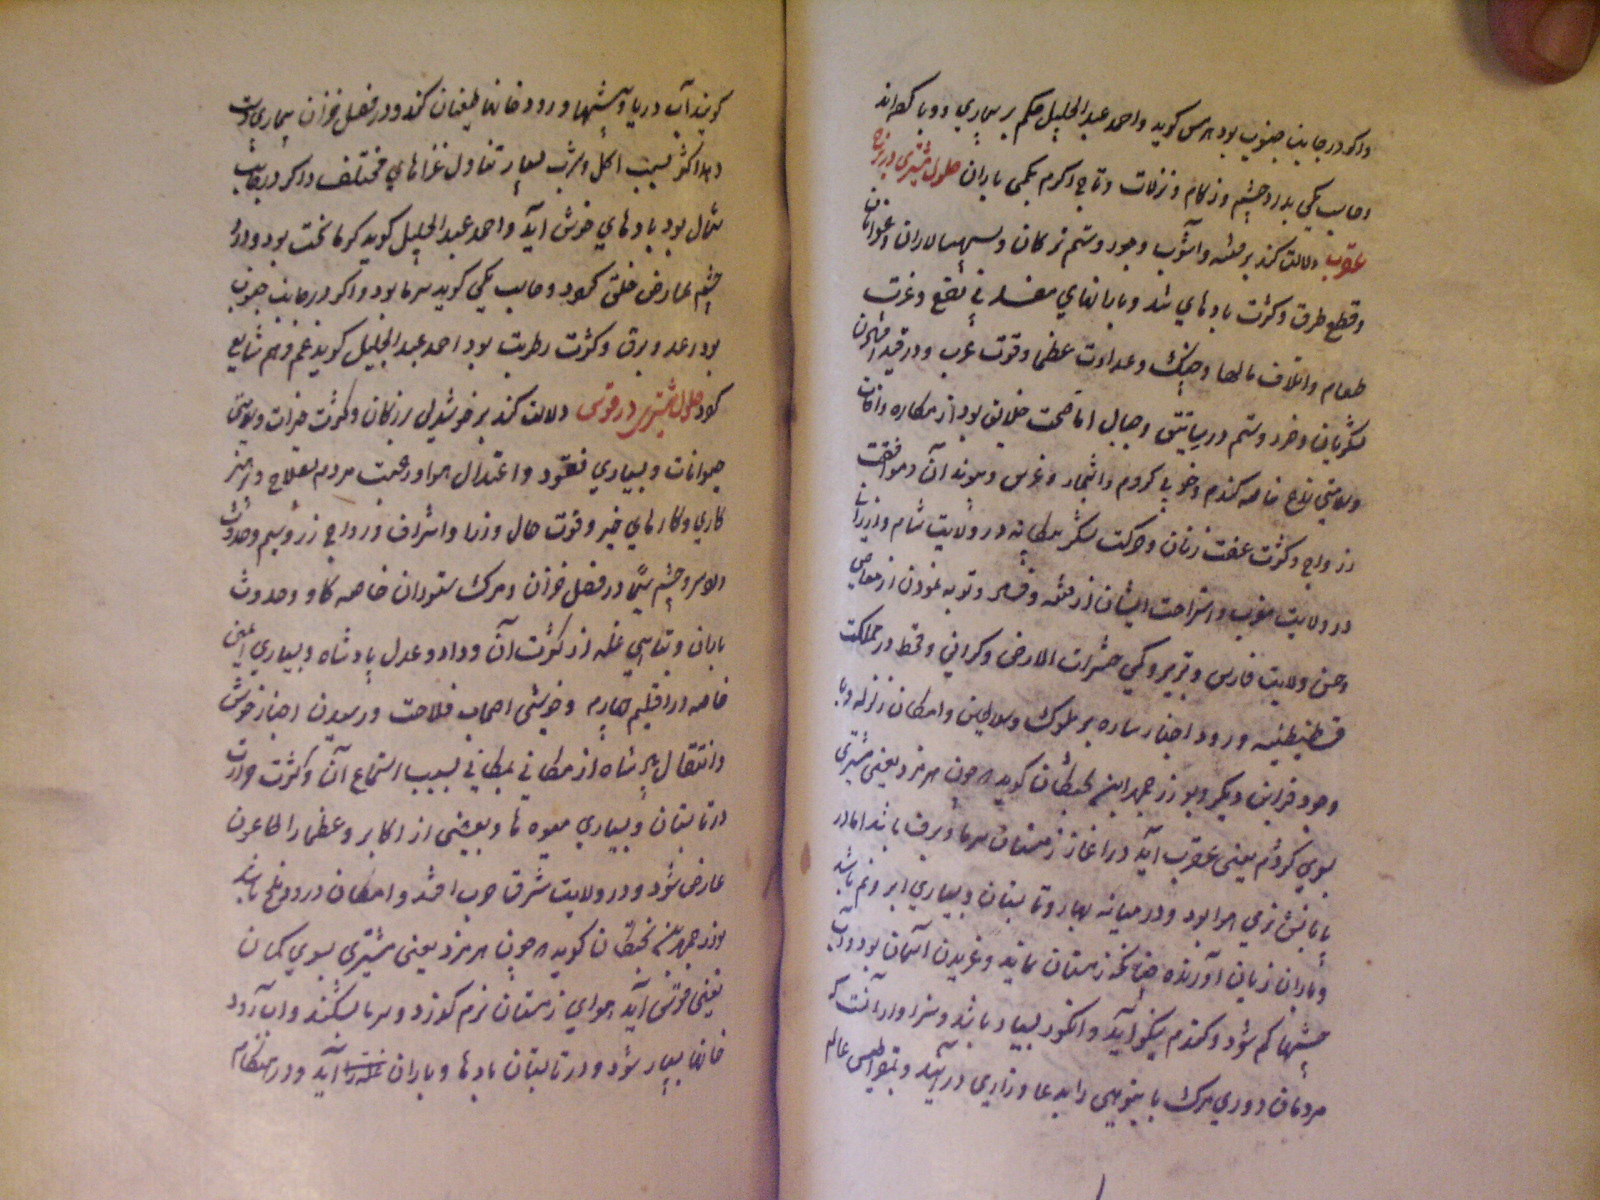 واکر در جانب جنوب بود هرمس کوید واحمد عبدالجلیل حکم بر بیماری ووبا کرده‌اند
وصاحب یکی بدرد چشم وزکام ونزلات وتاج اکرم بکمی باران حلول مشتری در برج
عقرب دلالت کند بر فتنه وآشوب وجور وستم ترکان وسپهسالاران وعوانان
وقطع طرق وکثرت بادهای تند وبارانهای مفسد بی نفع وعزت
طعام واتلاف مالها وجنک وعداوت عظما وقوت عرب ودر قید افتادن
لشکریان وخرد وستم در بیاتین وجبال اما صحت خلایق بود از مکاره وآفات
وسلامتی زرع خاصه کندم وخوبی کروم واشجار وغرس وپیوند آن وموافقت
ازواج وکثرت عفت زنان وحرکت لشکر بیکانه در ولایت شام
در ولایت مغرب واستراحت ایشان از فتنه وقهر وتوبه نمودن از معاصی
وحسن ولایت فارس وتبریز وکمی حشرات الارض وکرانی وقحط در مملکت
قسطنطنیه وورود اخبار ساره بر ملوک وسلاطین وامکان زلزله وبا
وجود قراین دیکر وبوزرجمهر ابن بختکان کوید که چون هرمزد یعنی مشتری
بسوی کژدم یعنی عقرب آید در آغاز زمستان سرما وبرف باشد اما در
پایانش نرمی هوا بود ودر میانه بهار وتابستان وبسیاری ابر ونم باشد
وباران زیان آورنده چنانکه زمستان نماید وغریدن آسمان بود وآب
چشمها کم شود وکندم نیکو آید وانکور بسیار باشد وسزاوار آنست که
مردمان دوری مرک با بینویی را بدعا وزاری درآیند وبطلمیوس عالم
کویند آب دریا وچشمها ورودخانها طغیان کند ودر فصل خزان بیماری
وهد اکثر بسبب اکل وشرب بسیار تناول غذاهای مختلف واکر در جانب
شمال بود بادهای خوش آید واحمد عبدالجلیل کوید کرما سخت بود ودرد
چشم عارض خلق شود وصاحب یکی کوید سرما بود واکر در جانب جنوب
بود رعد وبرق وکثرت رطوبت بود احمد عبدالجلیل کوید غم وهم شایع
شود حلول مشتری در قوس دلالت کند بر خوشدلی بزرکان وکثرت خیرات وسلامتی
حیوانات وبسیاری نقود واعتدال هوا ورغبت مردم بصلاح وپرهیز
کاری وکارهای خیر وقوت حال وزرا واشراف ورواج زر وسیم وحدوث
درد سر وچشم سیما در فصل خزان ومرک ستوران خاصه کاو وحدوث
باران وتباهی غله از کثرت آن وداد وعدل پادشاه وبسیاری ایمنی
خاصه در اقلیم چهارم وخوشی اصحاب فلاحت ورسیدن اخبار خوش
وانتقال پادشاه از مکانی بمکانی بسبب استماع آن وکثرت حرارت
در تابستان وبسیاری میوه‌ها وبعضی از اکابر وعظما را طاعون
عارض شود ودر ولایت شرق حرب افتد وامکان درد وبلخ باشد
بوزرجمهر بن بختکان کوید که چون هرمزد یعنی مشتری بسوی کمان
یعنی قوس آید هوای زمستان نرم کردد وسرما بشکند وآب رود
خانها بسیار شود ودر تابستان بادها وباران آید ودر هنکام